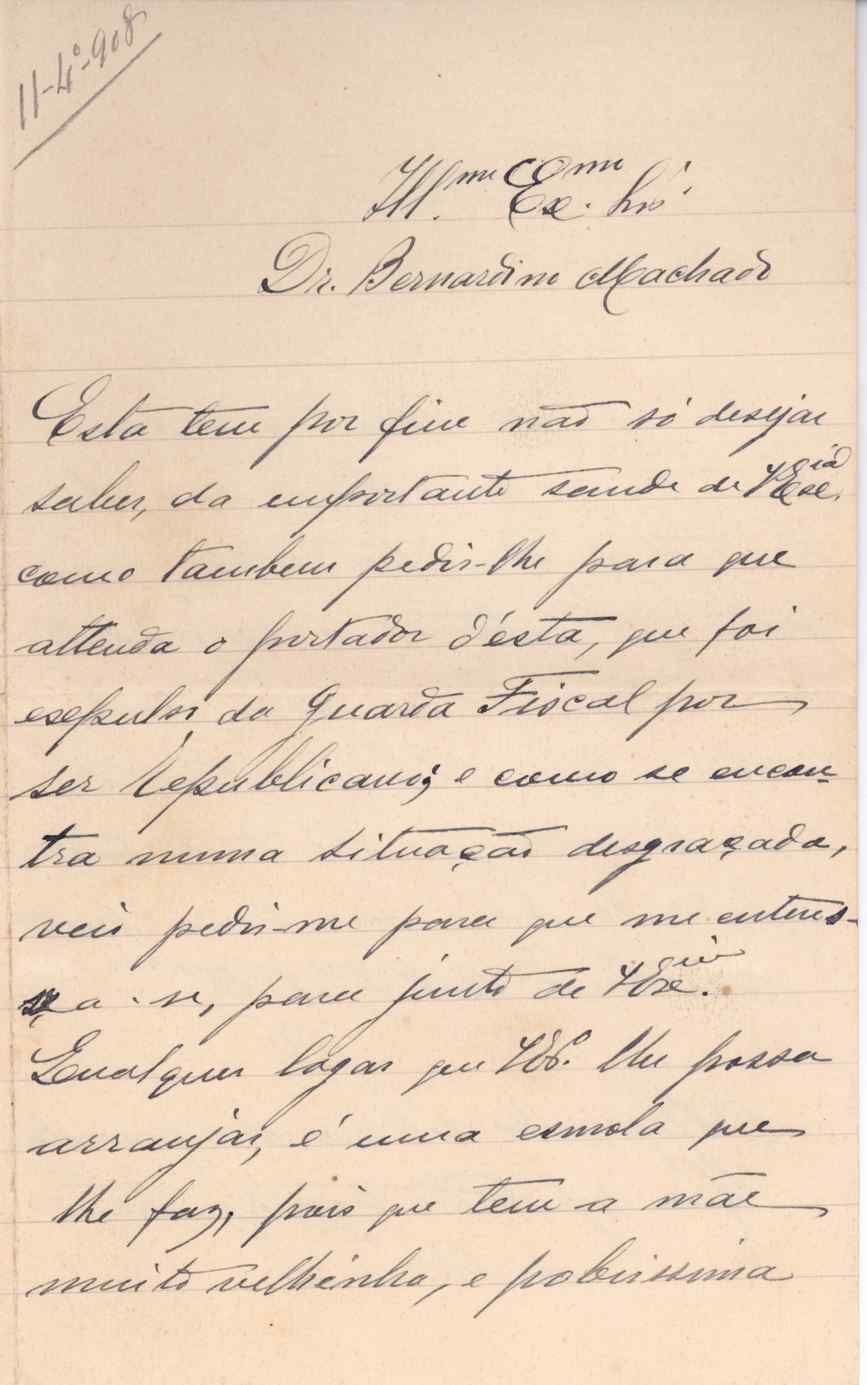 11-4º-908
Ill.mo Ex.mo Snr.
Dr. Bernardino Machado
Esta tem por fim não só desejar
saber, da importante saude de V Exe.cia
como tambem pedir-lhe para que
attenda o portador d'ésta, que foi
expulso, da Guarda Fiscal por
ser Republicano; e como se encon-
tra numa situação desgraçada,
veio pedir-me para que me enteres-
sa-se, para junto de V Exe.cia
Qualquer logar que V Ex.ª lhe possa
arranjar, é uma esmola que
lhe faz, pois que tem a mãe
muito velhinha, e pobrissima